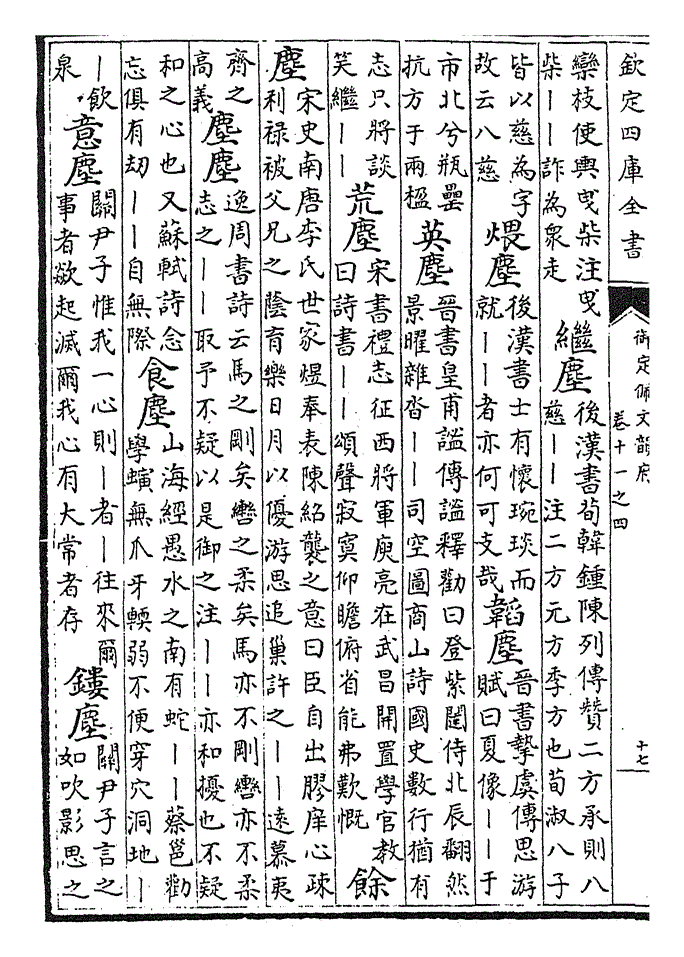 欽定四庫全書
御定佩文韻府
卷十一之四
十七
欒枝使輿曳柴注曳柴丨丨詐為衆走 繼塵 後漢書荀韓鍾陳列傳贊二方承則八慈丨丨注二方元方季方也荀淑八子
皆以慈為字故云八慈 煨塵 後漢書士有懷琬琰而就丨丨者亦何可支哉 韜塵 晉書摯虞傳思游賦曰夏像丨丨于
市北兮瓶罍抗方于兩楹 英塵 晉書皇甫謐傳謐釋勸曰登紫闥侍北辰翻然景曜雜沓丨丨司空圖商山詩國史數行猶有
志只將談笑繼丨丨 荒塵 宋書禮志征西將軍庾亮在武昌開置學官教曰詩書丨丨頌聲寂寞仰瞻俯省能弗歎慨 餘
塵 宋史南唐李氏世家煜奉表陳紹襲之意曰臣自出膠庠心疎利祿被父兄之蔭育樂日月以優游思追巢許之丨丨遠慕夷
齊之高義 塵塵 逸周書詩云馬之剛矣轡之柔矣馬亦不剛轡亦不柔志之丨丨取予不疑以是御之注丨丨亦和擾也不疑
和之心也又蘇軾詩念忘俱有刧丨丨自無際 食塵 山海經愚水之南有蛇丨丨蔡邕勸學螾無爪牙輭弱不便穿穴洞地丨
丨飲泉 意塵 關尹子惟我一心則丨者丨往來爾事者歘起滅爾我心有大常者存 鏤塵 關尹子言之如吹影思之